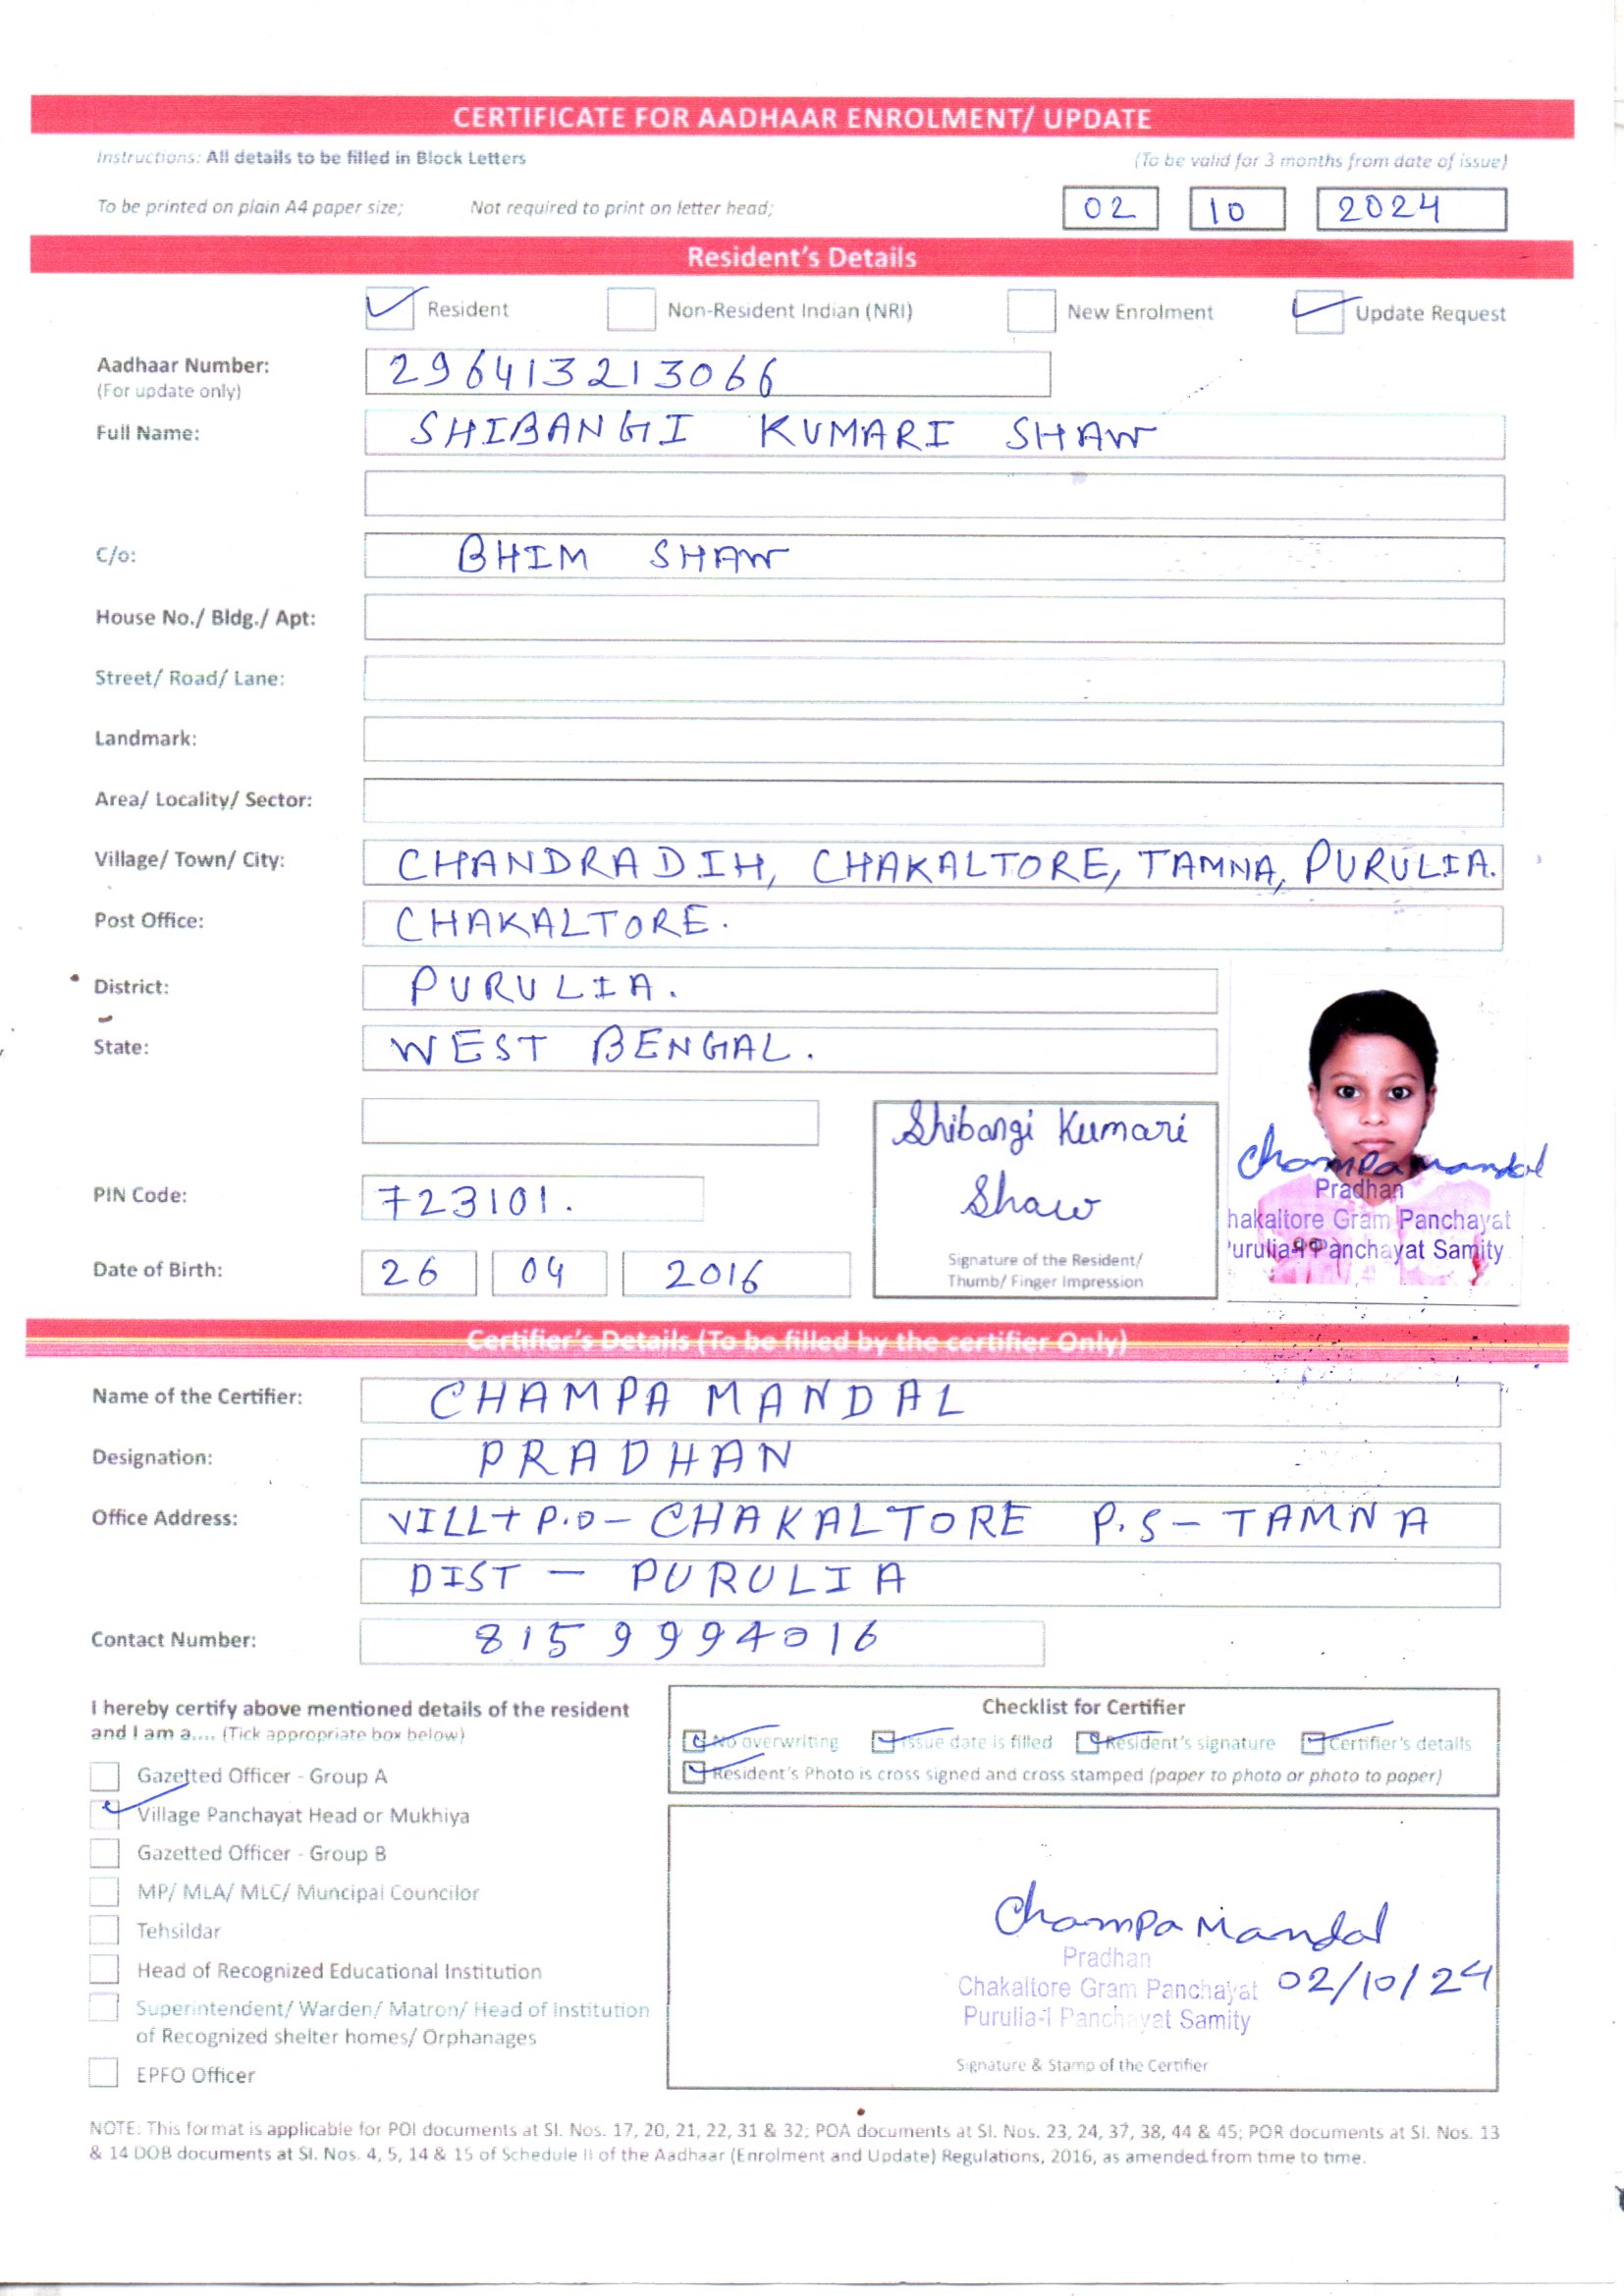 CERTIFICATE FOR AADHAAR ENROLMENT/ UPDATE
Instructions: All details to be filled in Block Letters
(To be valid for 3 months from date of issue)
To be printed on plain A4 paper size; Not required to print on letter head;
02 10 2024
Resident's Details
Resident Non-Resident Indian (NRI) New Enrolment Update Request
Aadhaar Number: 296413213066
(For update only)
Full Name: SHIBANGI KUMARI SHAW
C/o: BHIM SHAW
House No./ Bldg./ Apt:
Street/ Road/ Lane:
Landmark:
Area/ Locality/ Sector:
Village/ Town/ City: CHANDRADIH, CHAKALTORE, TAMNA, PURULIA.
Post Office: CHAKALTORE.
District: PURULIA.
State: WEST BENGAL.
Shibangi Kumari
Shaw
Champa Mandal
Pradhan
hakaltore Gram Panchayat
urulia-I Panchayat Samity
PIN Code: 723101.
Signature of the Resident/
Thumb/ Finger Impression
Date of Birth: 26 04 2016
Certifier's Details (To be filled by the certifier Only)
Name of the Certifier: CHAMPA MANDAL
Designation: PRADHAN
Office Address: VILL+P.O- CHAKALTORE P.S- TAMNA
DIST - PURULIA
Contact Number: 8159994016
I hereby certify above mentioned details of the resident
and I am a.... (Tick appropriate box below)
Gazetted Officer - Group A
Village Panchayat Head or Mukhiya
Gazetted Officer - Group B
MP/ MLA/ MLC/ Muncipal Councilor
Tehsildar
Head of Recognized Educational Institution
Superintendent/ Warden/ Matron/ Head of Institution
of Recognized shelter homes/ Orphanages
EPFO Officer
Checklist for Certifier
No overwriting Issue date is filled Resident's signature Certifier's details
Resident's Photo is cross signed and cross stamped (paper to photo or photo to paper)
Champa Mandal
Pradhan
Chakaltore Gram Panchayat 02/10/24
Purulia-I Panchayat Samity
Signature & Stamp of the Certifier
NOTE: This format is applicable for POI documents at SI. Nos. 17, 20, 21, 22, 31 & 32; POA documents at SI. Nos. 23, 24, 37, 38, 44 & 45; POR documents at SI. Nos. 13
& 14 DOB documents at SI. Nos. 4, 5, 14 & 15 of Schedule II of the Aadhaar (Enrolment and Update) Regulations, 2016, as amended from time to time.